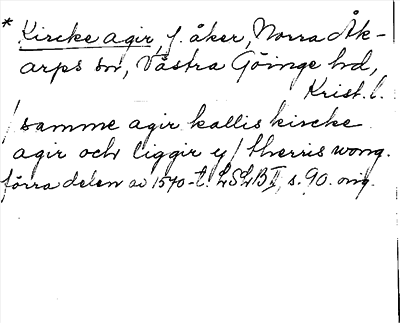 * Kircke agir, f. åker, Norra Åk-
arps sn, Västra Göinge hd,
Krist. l.
/ samme agir kallis kircke
agir och liggir y / therris wong.
förra delen av 1540-t. LSLB II, s. 90. orig.